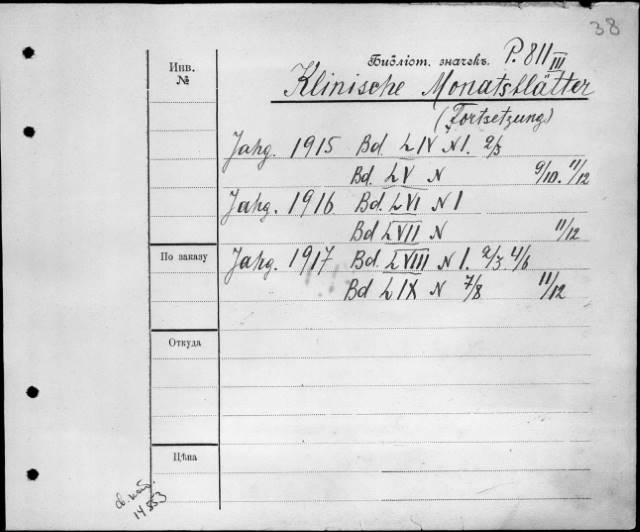 38
Инв.
№
Библіот. значекъ. P. 811 III
Klinische Monatsblätter
(Fortsetzung)
Jahg. 1915 Bd. LIV N 1. 2/3
Bd. LV N 9/10. 11/12
Jahg. 1916 Bd. LVI N 1
Bd LVII N 11/12
По заказу
Jahg. 1917 Bd. LVIII N 1. 2/3. 4/6
Bd LIX N 7/8 11/12
Откуда
Цѣна
14.553